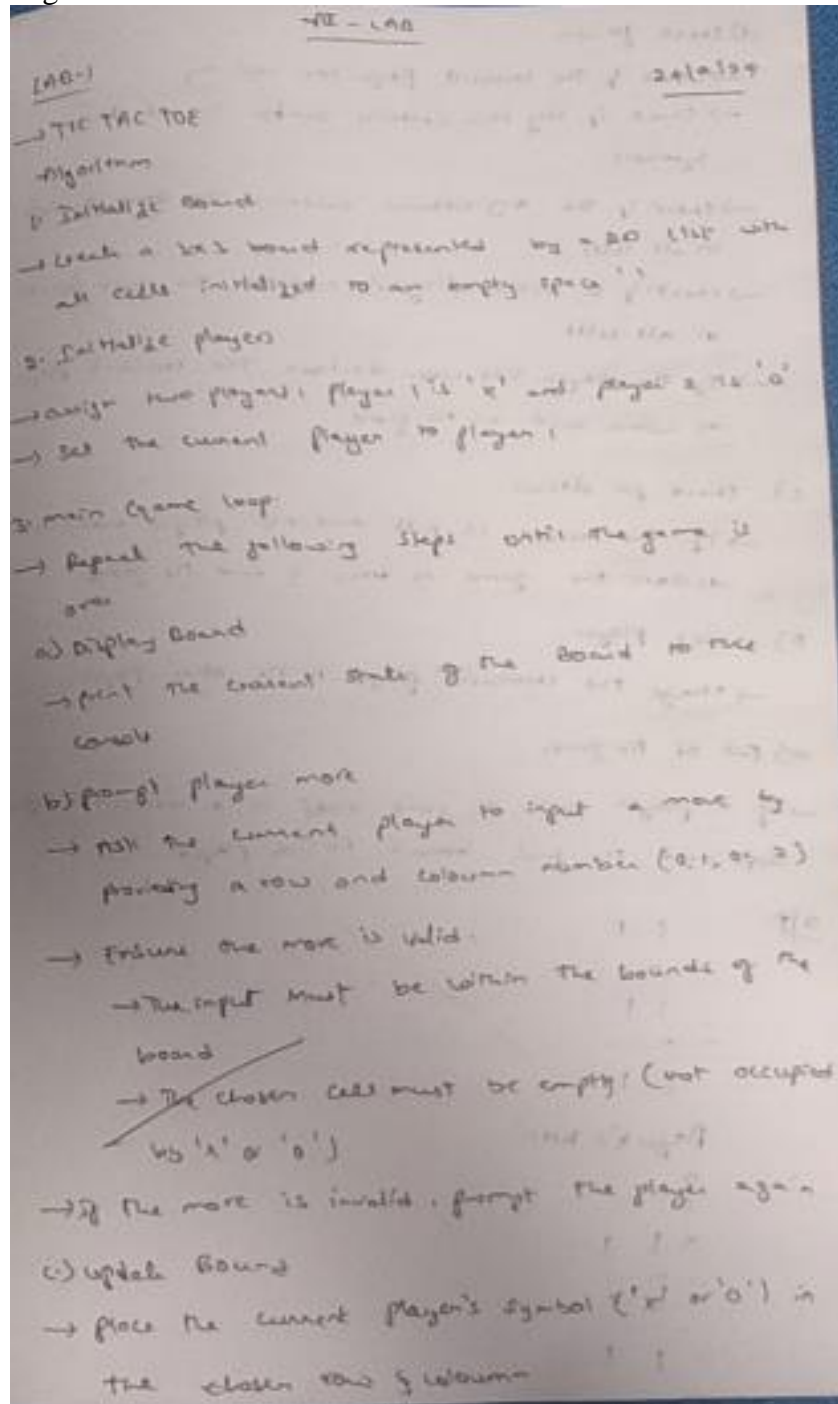 AI - LAB
LAB-1
24/9/24
→ TIC TAC TOE
Algorithm
1. Initialize Board
→ create a 3x3 board represented by a 2D list with
all cells initialized to an empty space ' '
2. Initialize players
→ assign two players, player 1 is 'x' and player 2 is 'o'
→ set the current player to player 1
3. main Game loop
→ Repeat the following steps until the game is
over
a) Display Board
→ print the current state of the Board to the
console
b) prompt player move
→ Ask the current player to input a move by
providing a row and coloumn number (0, 1, or 2)
→ Ensure the move is valid.
→ The input must be within the bounds of the
board
→ The chosen cell must be empty (not occupied
by 'x' or 'o')
→ if the move is invalid, prompt the player again
c) update Board
→ place the current player's symbol ('x' or 'o') in
the chosen row & coloumn